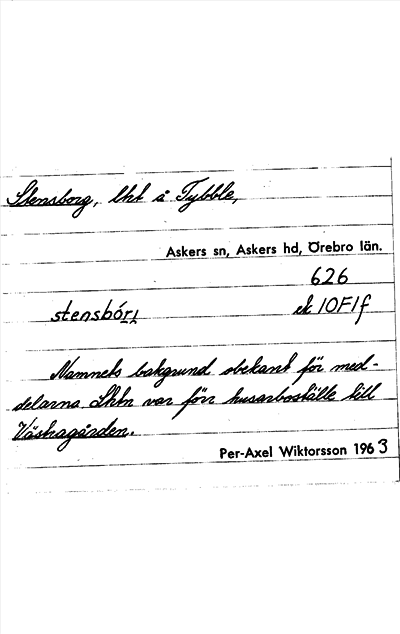 Stensborg, lht å Tybble,
Askers sn, Askers hd, Örebro län.
626
stensbórj ek 10F1f
Namnets bakgrund obekant för med-
delarna. Lhtn var förr husarboställe till
Västragården.
Per-Axel Wiktorsson 1963